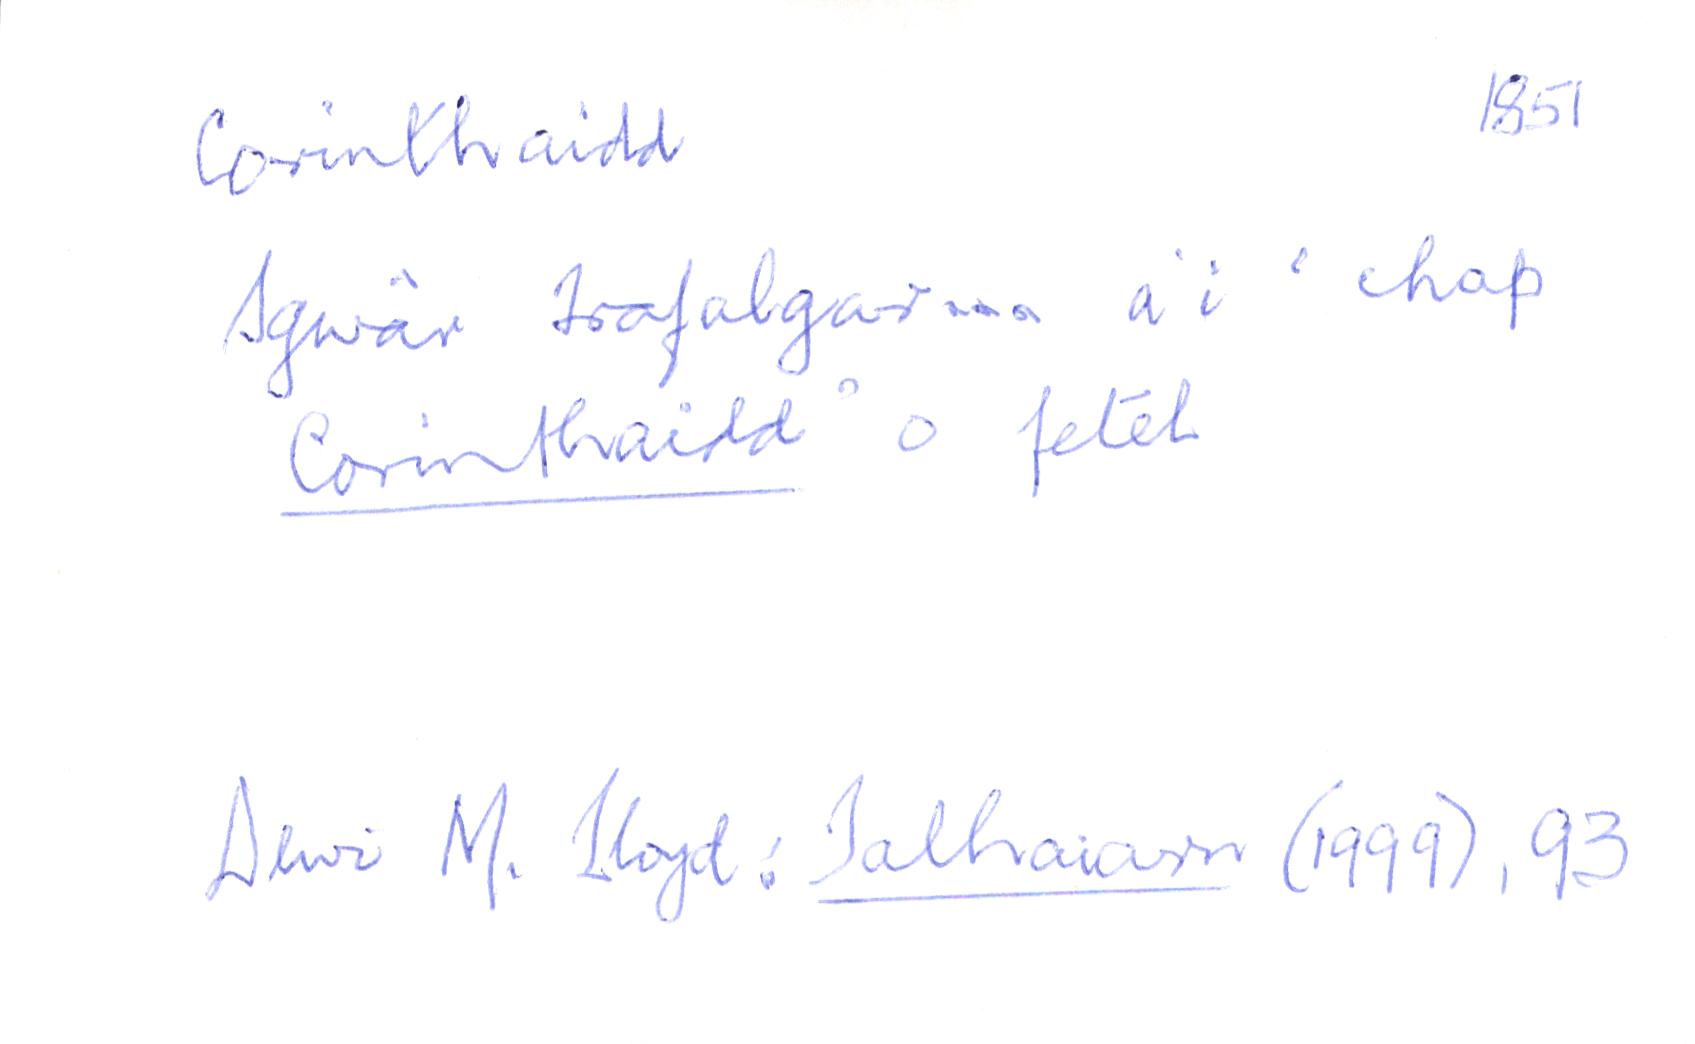 Corinthaidd 1851
Sgwâr Trafalgar ... a'i ' chap
Corinthaidd ' o feteh
Dewi M. Lloyd: Talhaiarn (1999), 93